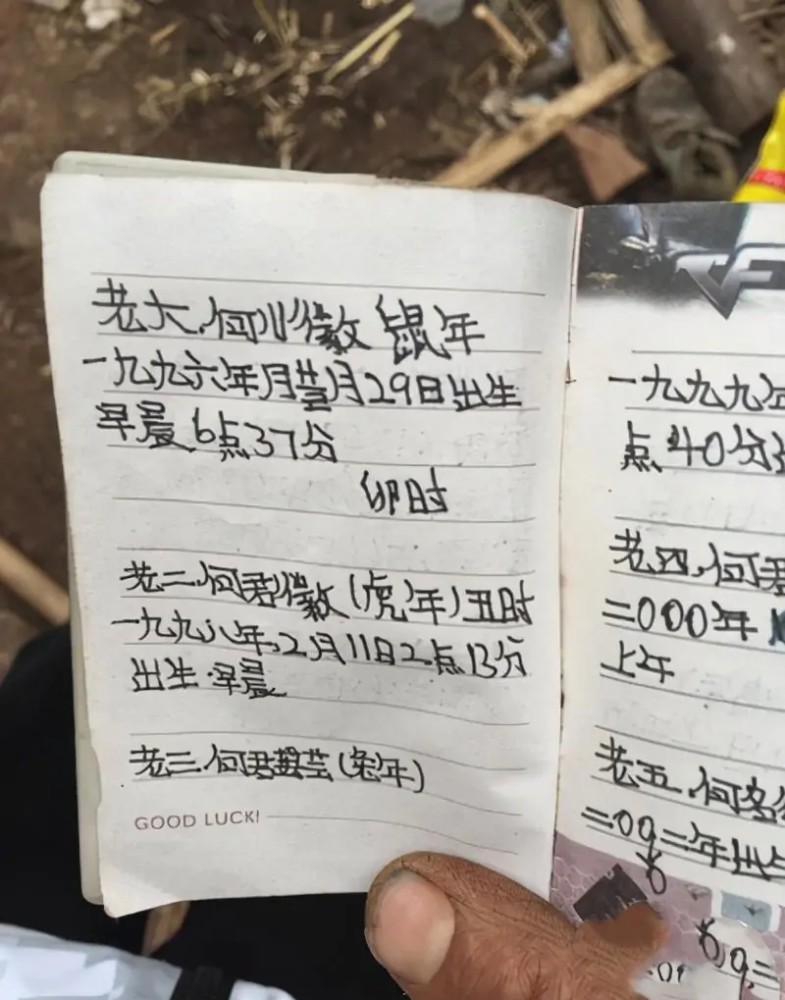 老大.何小徽 鼠年
一九九六年月 月29日出生
早晨6点37分
卯时
老二.何君徽(虎年)丑时
一九九八年.2月11日2点13分
出生.早晨
老三.何君 (兔年)
GOOD LUCK!
一九九九年
点40分
老四.何君
二000年
上午
老五.何
二00二年出生